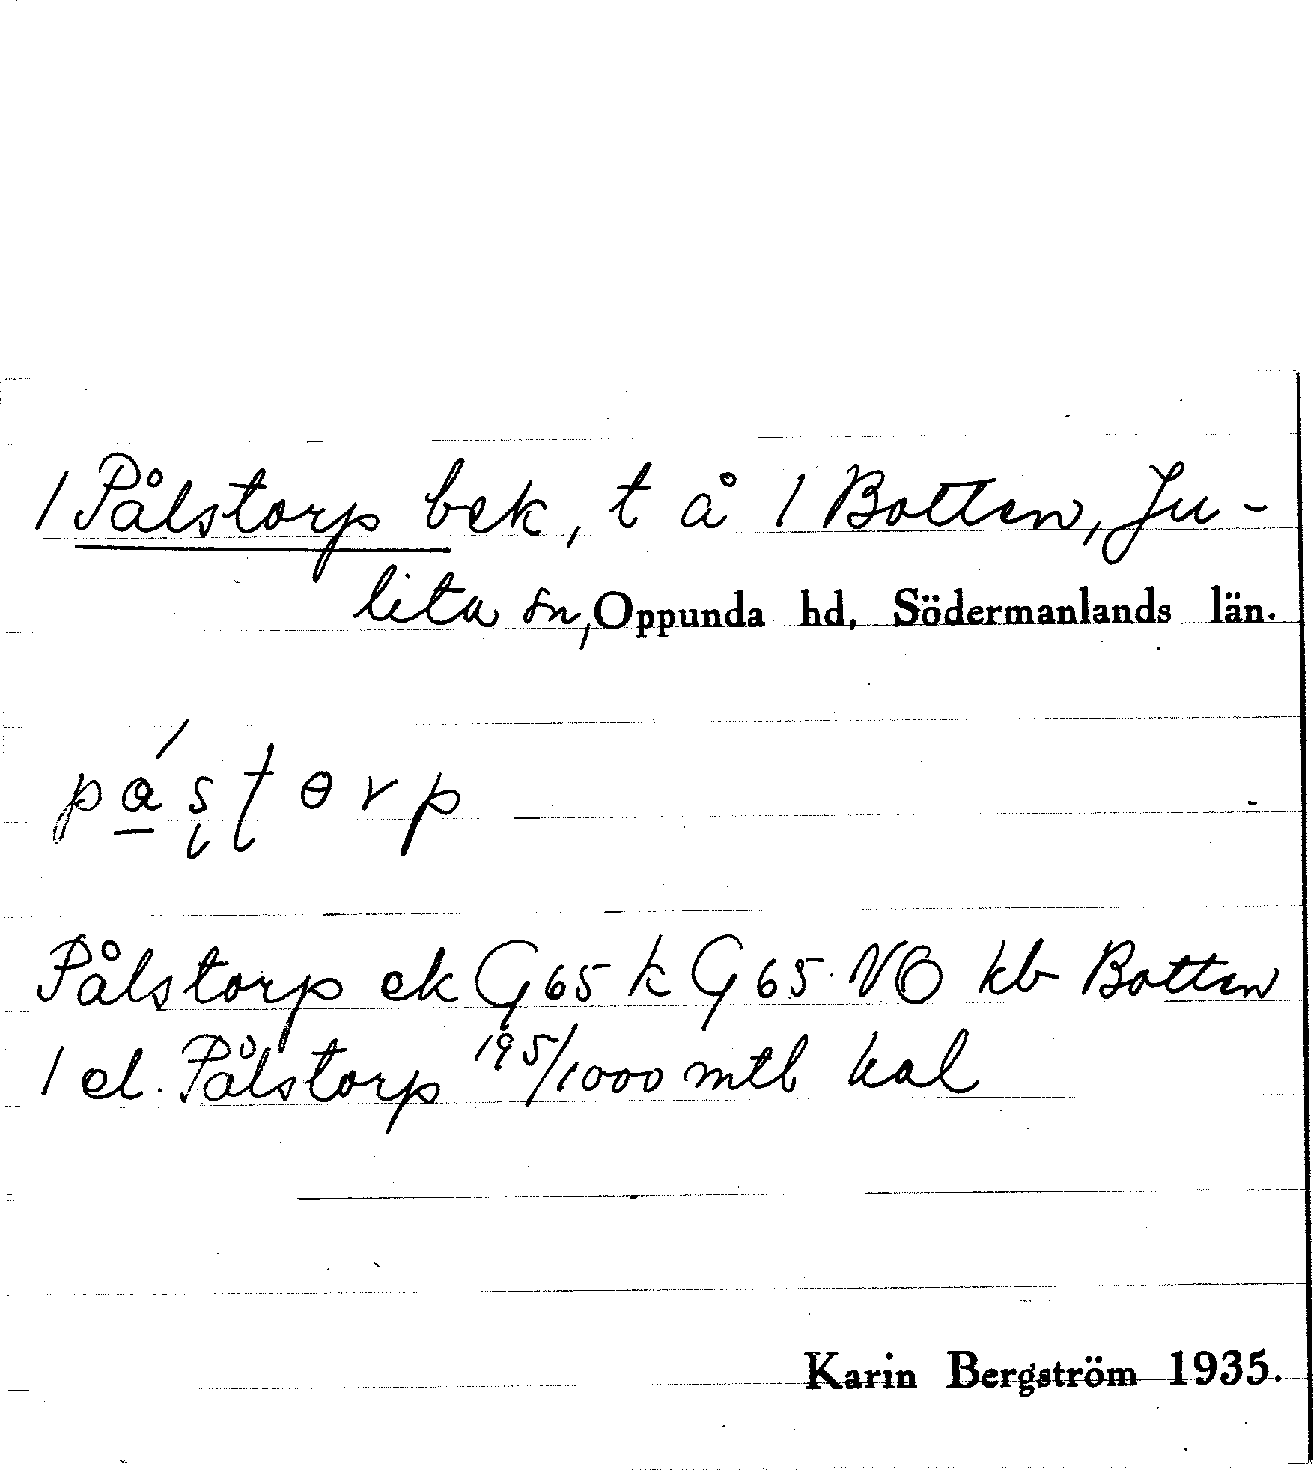 / Pålstorp bek, t å / Botten, Ju-
lita sn, Oppunda hd, Södermanlands län.
pá̱ʂʈɵrp
Pålstorp ek G65 k G65. NO kb Botten
/ el. Pålstorp 195/1000 mtl kal
Karin Bergström 1935.